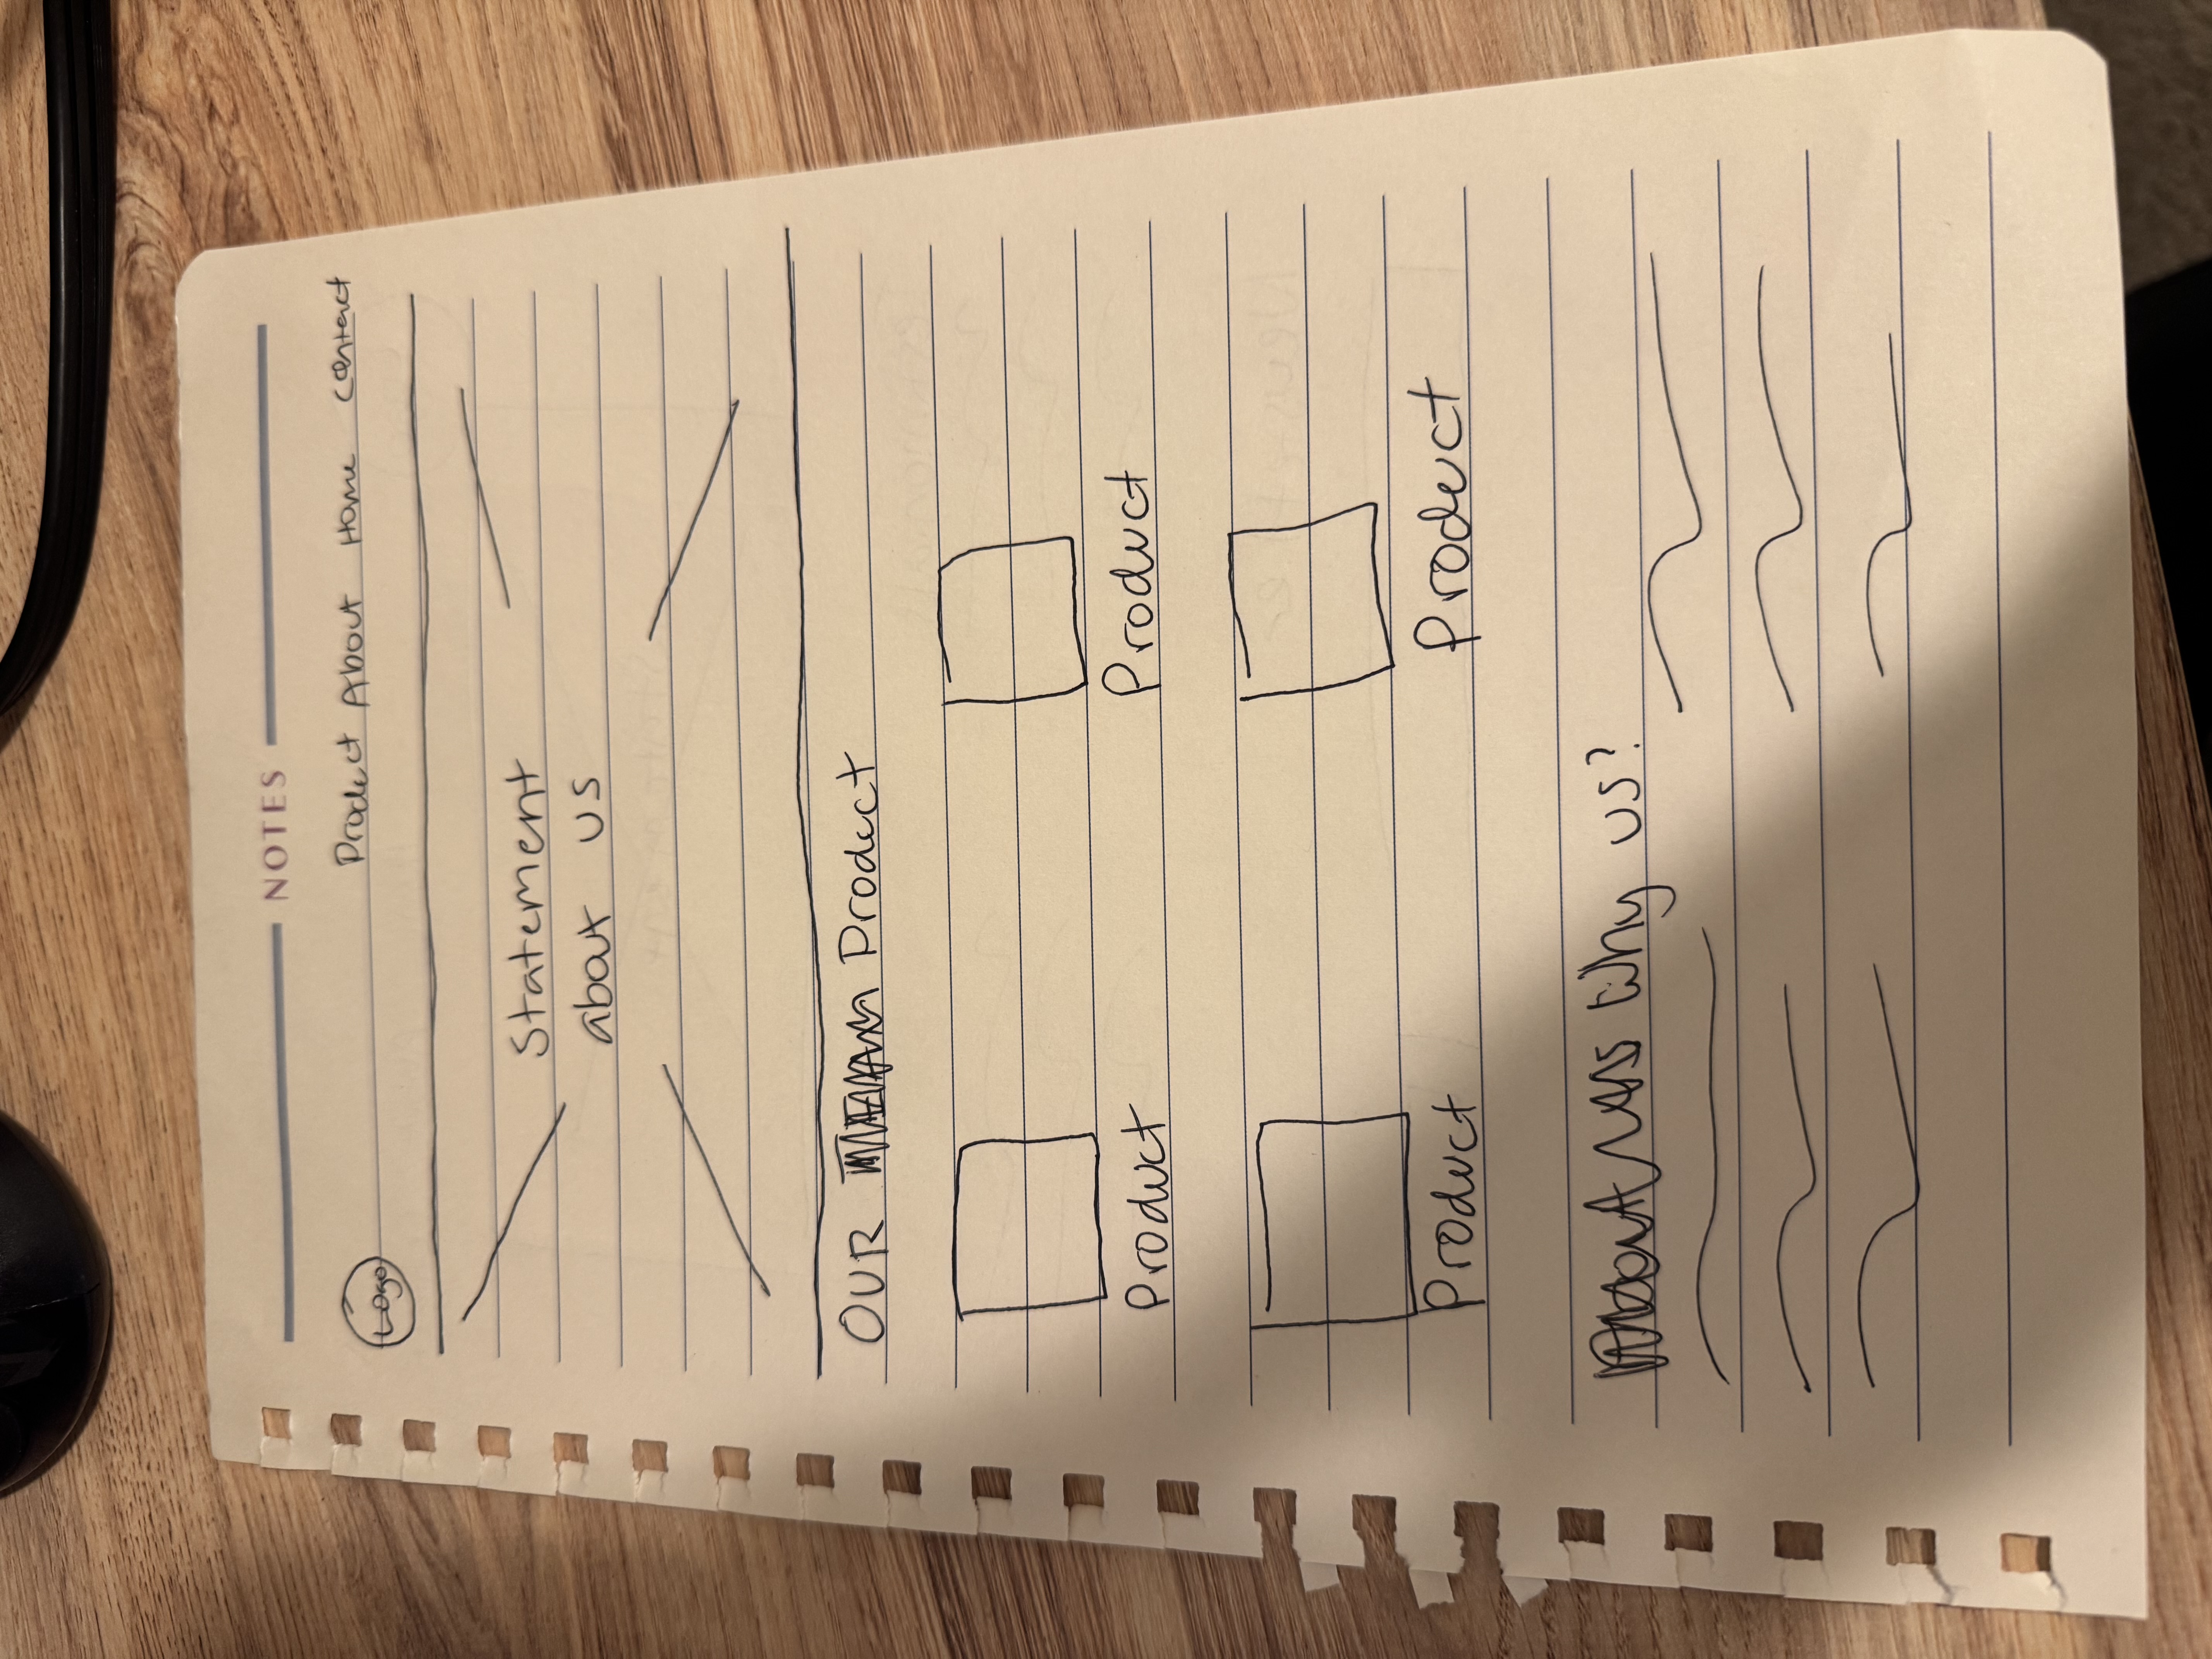 NOTES
Logo Product About Home Contact
Statement
about us
OUR Product
Product Product
Product Product
Why us?